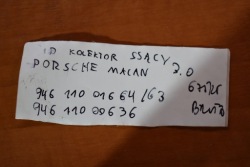 ID KOLEKTOR SSĄCY
PORSCHE MACAN 2.0
946 110 016 64/63
946 110 00636